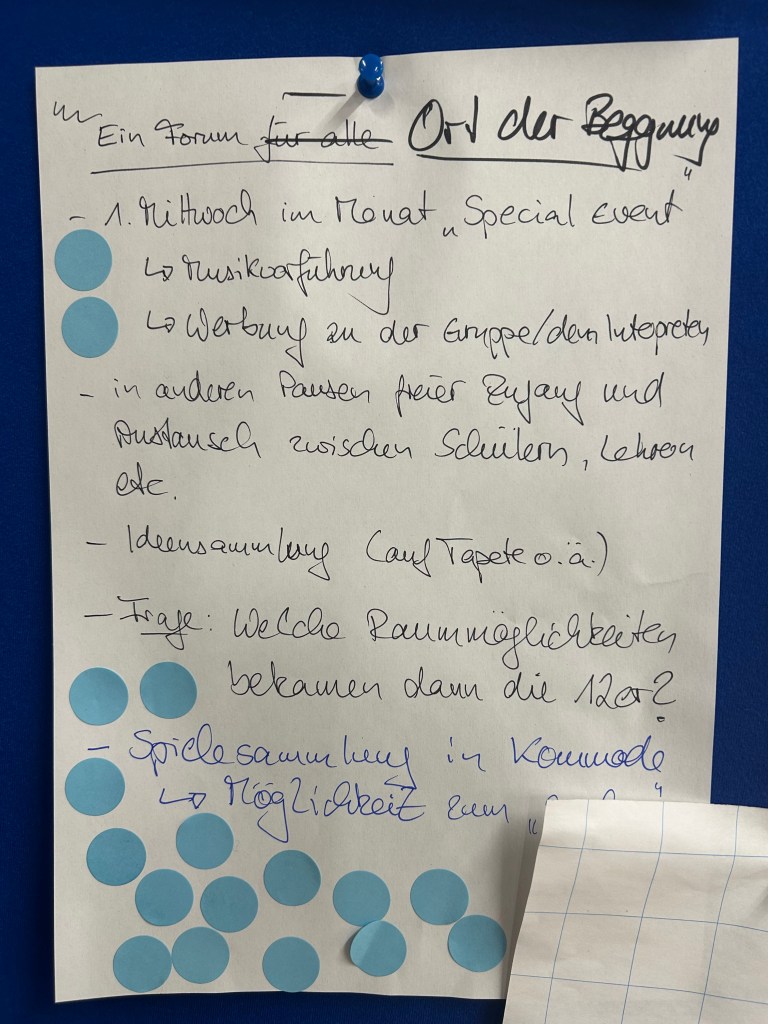 Ein Forum für alle Ort der Beggnung
- 1. Mittwoch im Monat „Special Event"
↳ Musikvorführung
↳ Werbung zu der Gruppe/dem Interpreten
- in anderen Pausen freier Zugang und
Austausch zwischen Schülern, Lehrern
etc.
- Ideensammlung (auf Tapete o.ä.)
- Frage: Welche Raummöglichkeiten
bekamen dann die 12er?
- Spielesammlung in Kommode
↳ Möglichkeit zum „